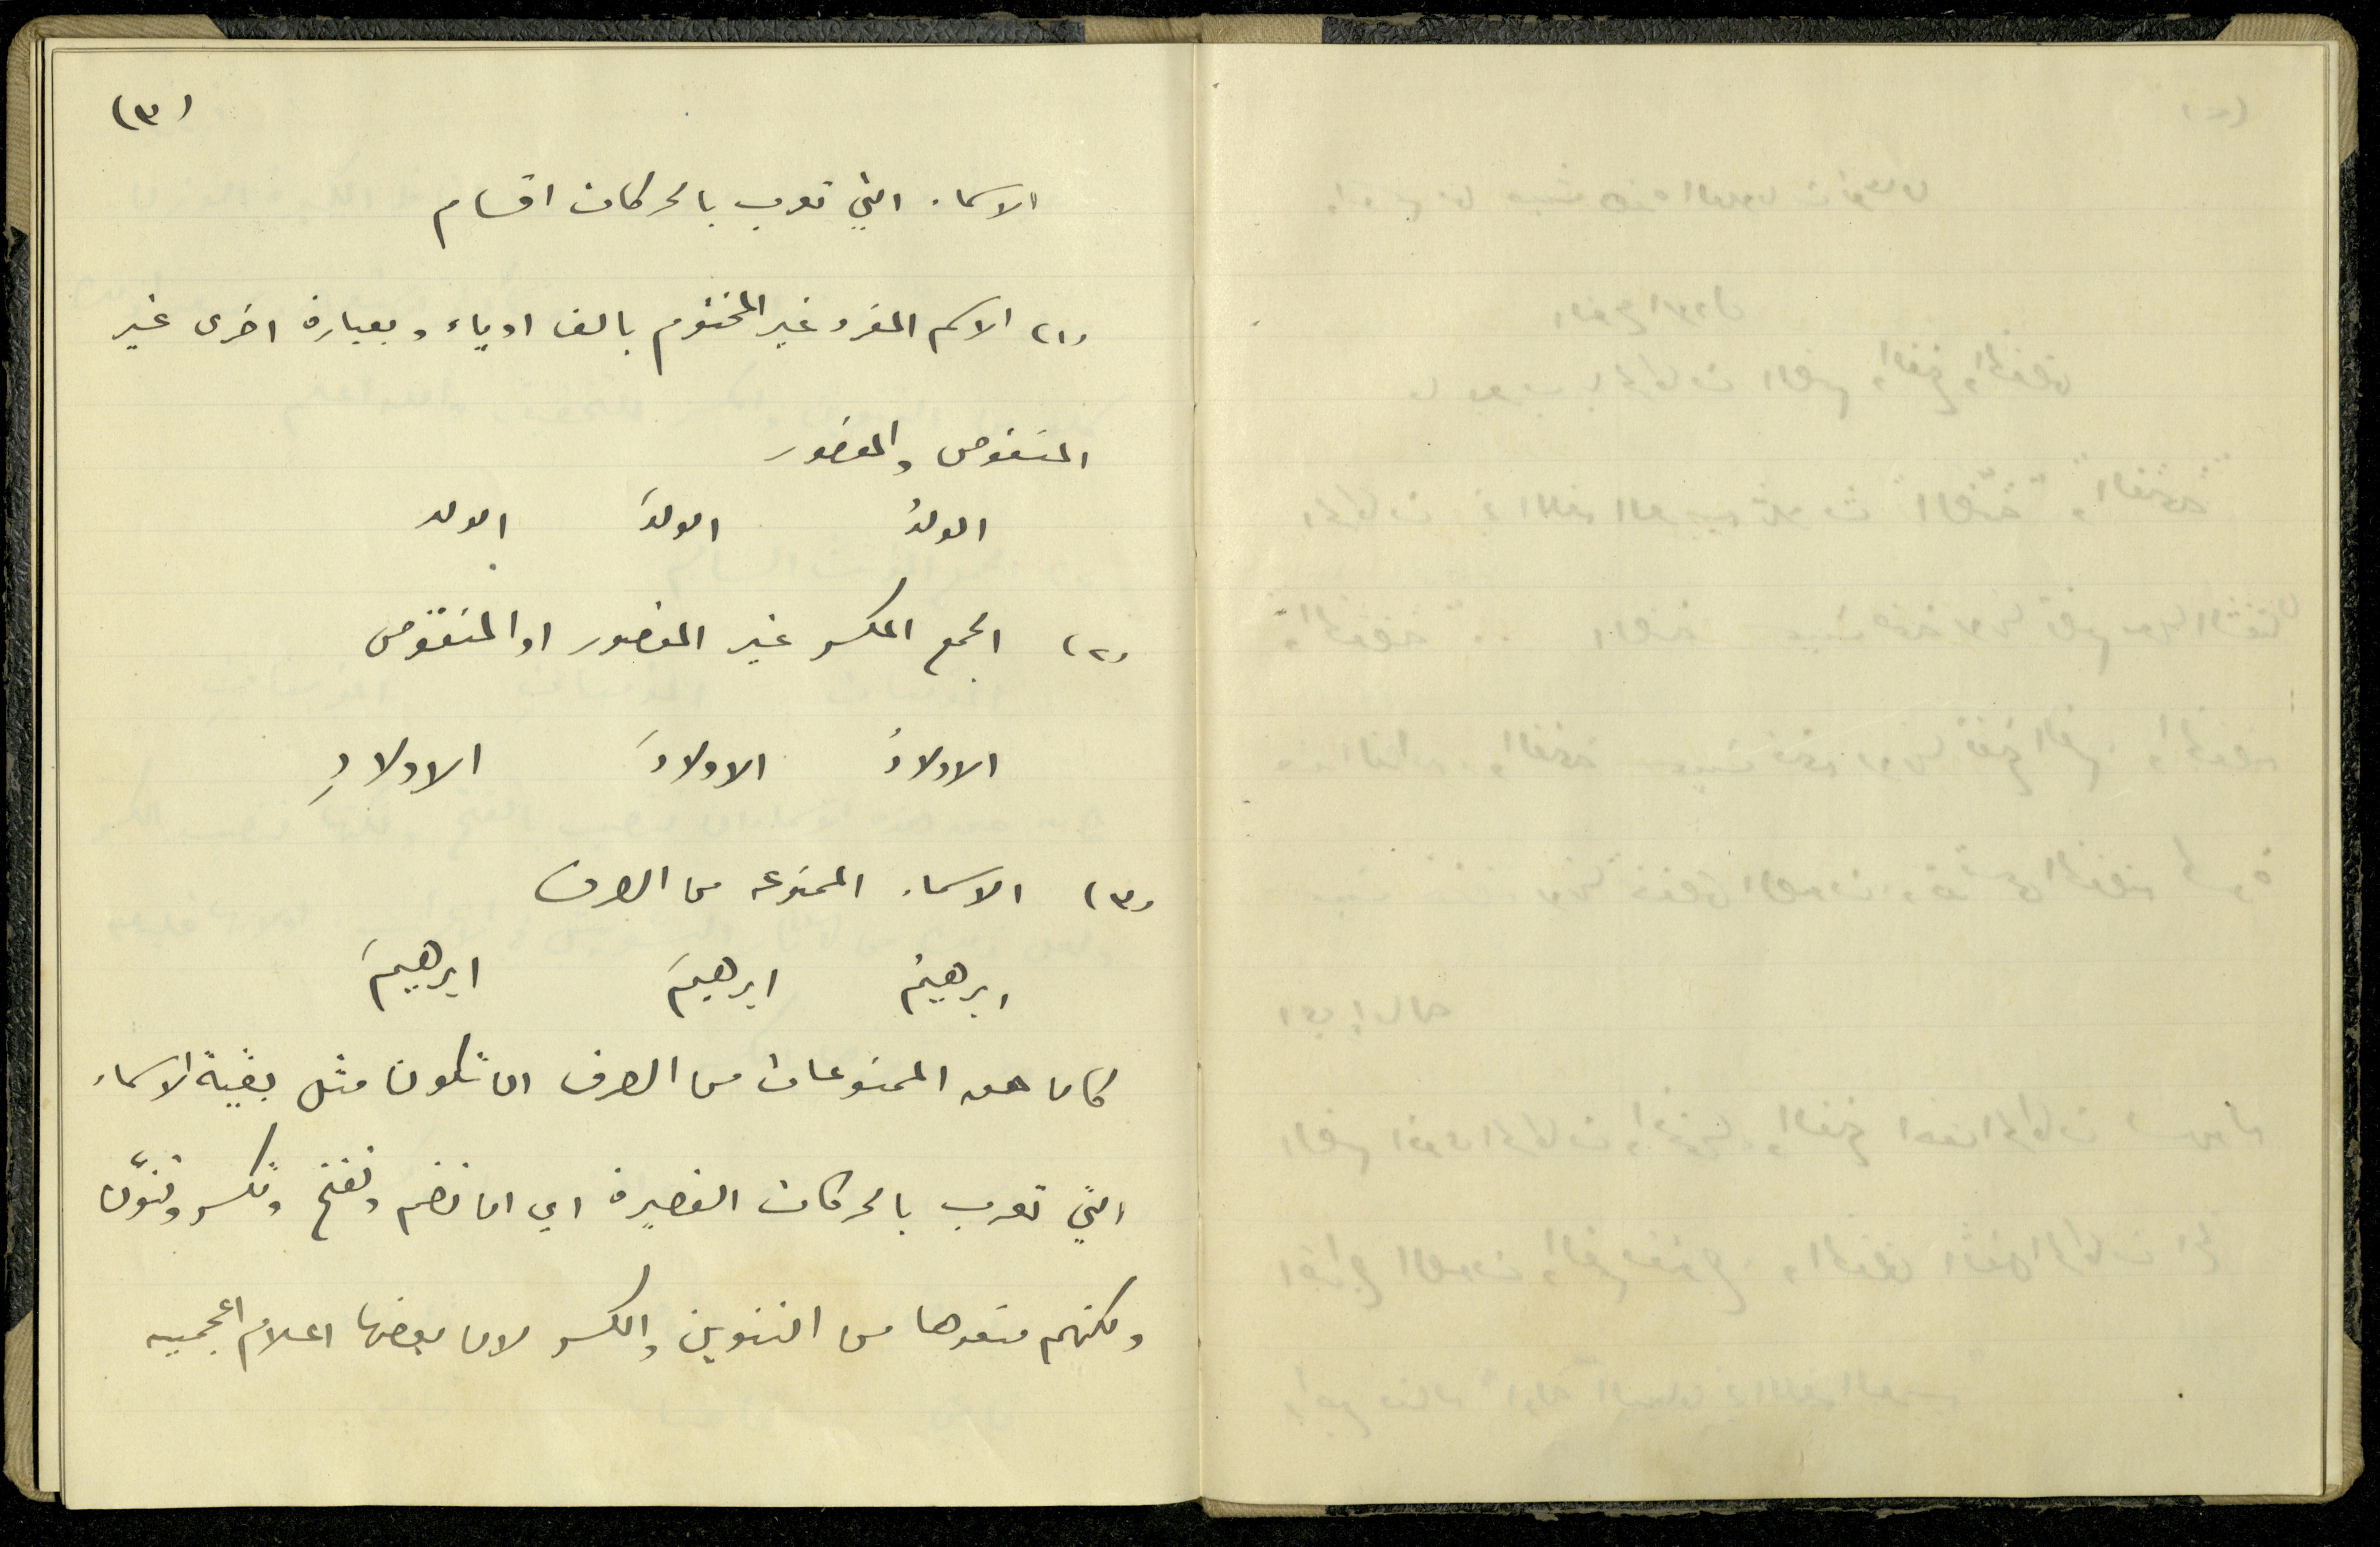 (٣)
الاسماء التي تعرب بالحركات اقسام
(١) الاسم المفرد غير المختوم بالف او ياء وبعبارة اخرى غير
المنقوص والمقصور
الولدُ الولدَ الولدِ
(٢) الجمع المكسر غير المقصور او المنقوص
الاولادُ الاولادَ الاولادِ
(٣) الاسماء الممنوعه من الصرف
ابرهيمُ ابرهيمَ ابرهيمَ
كان حق الممنوعات من الصرف ان تكون مثل بقية الاسماء
التي تعرب بالحركات القصيرة اي ان تضم وتفتح وتكسر وتنوّن
ولكنهم منعوها من التنوين والكسر لان بعضها اعلام اعجميه